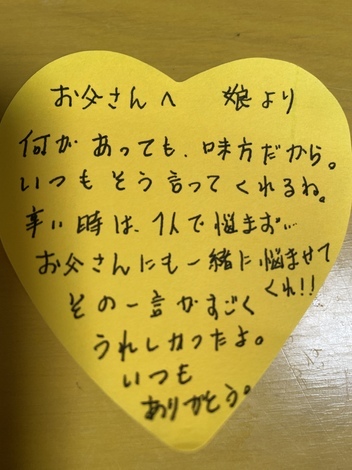 お父さんへ　娘より
何があっても、味方だから。
いつもそう言ってくれるね。
辛い時は、1人で悩まず…
お父さんにも一緒に悩ませて
くれ!!
その一言がすごく
うれしかったよ。
いつも
ありがとう。